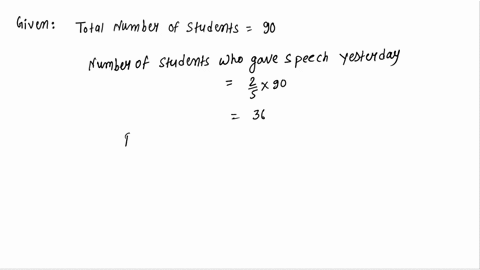 Given: Total Number of Students = 90
Number of students who gave speech yesterday
= 2/5 × 90
= 36